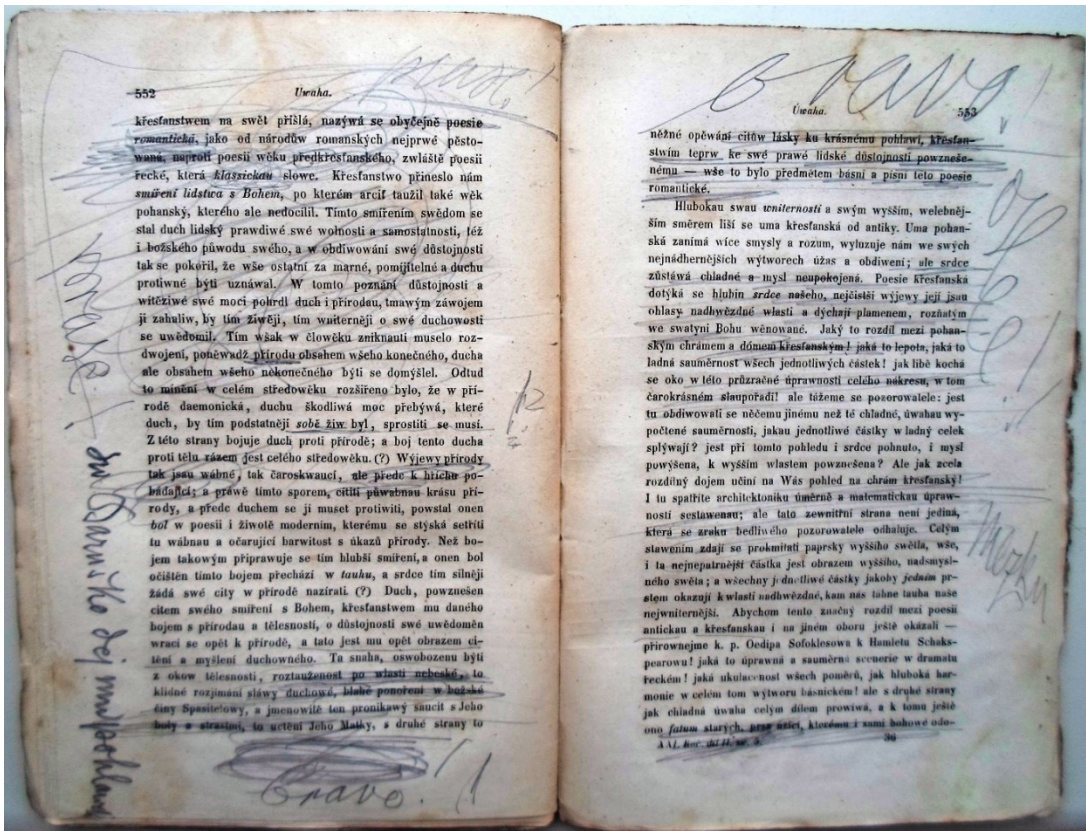 552 Uwaha.
křesťanstwem na swět přišlá, nazýwá se obyčejně poesie
romantická, jako od národůw romanských nejprwé pěsto-
waná, naproti poesii wěku předkřesťanského, zwláště poesii
řecké, která klassickau slowe. Křesťanstwo přineslo nám
smíření lidstva s Bohem, po kterém arciť taužil také wěk
pohanský, kterého ale nedocílil. Tímto smířením swědom se
stal duch lidský prawdiwé swé wolnosti a samostatnosti, též
i božského půwodu swého, a w obdiwowání swé důstojnosti
tak se pokořil, že wše ostatní za marné, pomíjitelné a duchu
protiwné býti uznáwal. W tomto poznání důstojnosti a
witězíwé swé moci pohrdl duch i přírodau, tmawým záwojem
ji zahaliw, by tím žiwěji, tím wniterněji o swé duchowosti
se uwědomil. Tím wšak w člowěku zniknauti muselo roz-
dwojení, poněwadž přírodu obsahem wšeho konečného, ducha
ale obsahem wšeho někonečného býti se domýšlel. Odtud
to mínění w celém středowěku rozšířeno bylo, že w pří-
rodě daemonická, duchu škodliwá moc přebýwá, které
duch, by tím podstatněji sobě žiw byl, sprostiti se musí.
Z této strany bojuje duch proti přírodě; a boj tento ducha
proti tělu rázem jest celého středowěku. (?) Wýjewy přírody
tak jsau wábné, tak čaroskwaucí, ale předc k hříchu po-
bádající; a práwě tímto sporem, cítiti půwabnau krásu pří-
rody, a předc duchem se jí muset protiwiti, powstal onen
bol w poesii i žiwotě moderním, kterému se stýská setříti
tu wábnau a očarující barwitost s úkazů přírody. Než bo-
jem takowým připrawuje se tím hlubší smíření, a onen bol
očištěn tímto bojem přechází w tauhu, a srdce tím silněji
žádá swé city w přírodě nazírati. (?) Duch, powznešen
citem swého smíření s Bohem, křesťanstwem mu daného
bojem s přírodau a tělesností, o důstojnosti swé uwědoměn
wrací se opět k přírodě, a tato jest mu opět obrazem cí-
tění a myšlení duchowného. Ta snaha, oswobozenu býti
z okow tělesnosti, roztauženost po wlasti nebeské, to
klidné rozjímání sláwy duchowé, blahé ponoření w božské
činy Spasitelowy, a jmenowitě ten pronikawý saucit s Jeho
boly a strastmi, to uctění Jeho Matky, s druhé strany to
bravo!
Úwaha. 553
něžné opěwání citůw lásky ku krásnému pohlawí, křesťan-
stwím teprw ke swé prawé lidské důstojnosti powzneše-
nému — wše to bylo předmětem básní a písní této poesie
romantické.
Hlubokau swau wniterností a swým wyšším, welebněj-
ším směrem liší se uma křesťanská od antiky. Uma pohan-
ská zanímá wíce smysly a rozum, wyluzuje nám we swých
nejnádhernějších wýtworech úžas a obdiwení; ale srdce
zůstáwá chladné a mysl neupokojená. Poesie křesťanská
dotýká se hlubin srdce našeho, nejčistší wýjewy její jsau
ohlasy nadhwězdné wlasti a dýchají plamenem, rozňatým
we swatyni Bohu wěnowané. Jaký to rozdíl mezi pohan-
ským chrámem a dómem křesťanským! jaká to lepota, jaká to
ladná sauměrnost wšech jednotliwých částek! jak libě kochá
se oko w této průzračné úprawnosti celého nákresu, w tom
čarokrásném slaupořadí! ale tážeme se pozorowatele: jest
tu obdiwowati se něčemu jinému než té chladné, úwahau wy-
počtené sauměrnosti, jakau jednotliwé částky w ladný celek
splýwají? jest při tomto pohledu i srdce pohnuto, i mysl
powýšena, k wyšším wlastem powznešena? Ale jak zcela
rozdílný dojem učiní na Wás pohled na chrám křesťanský!
I tu spatříte architektoniku úměrně a matematickau úpraw-
ností sestawenau; ale tato zewnitřní strana není jediná,
která se zraku bedliwého pozorowatele odhaluje. Celým
stawením zdají se prokmitati paprsky wyššího swětla, wše,
i ta nejnepatrnější částka jest obrazem wyššího, nadsmysl-
ného swěta; a wšechny jednotliwé částky jakoby jedním pr-
stem okazují k wlasti nadhwězdné, kam nás táhne tauha naše
nejwniternější. Abychom tento značný rozdíl mezi poesií
antickau a křesťanskau i na jiném oboru ještě okázali —
přirownejme k. p. Oedipa Sofoklesowa k Hamletu Schaks-
pearowu! jaká to úprawná a sauměrná scenerie w dramatu
řeckém! jaká ukulacenost wšech poměrů, jak hluboká har-
monie w celém tom wýtworu básnickém! ale s druhé strany
jak chladná úwaha celým dílem prowíwá, a k tomu ještě
ono fatum starých, pras užící, kterému i sami bohowé odo-
36
bravo!